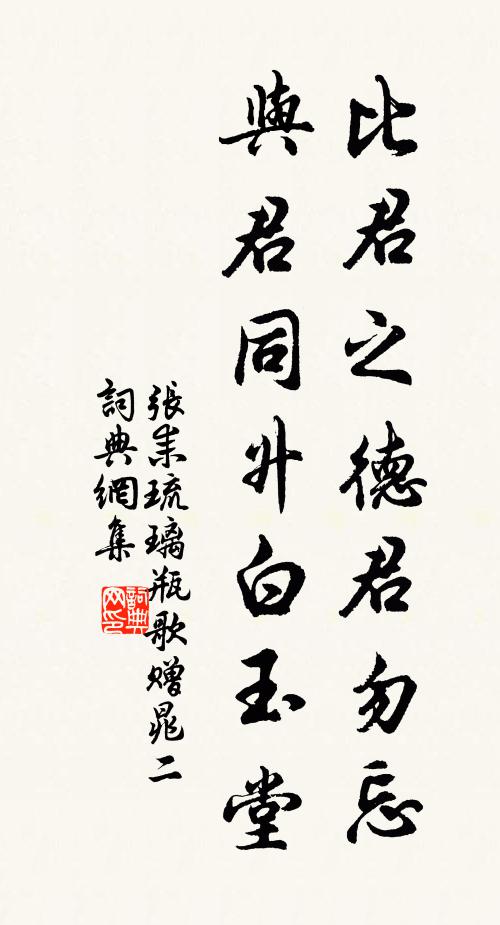 比君之德君勿忘
與君同升白玉堂
張耒琉璃瓶歌贈晁二
詞典網集
詞典网印